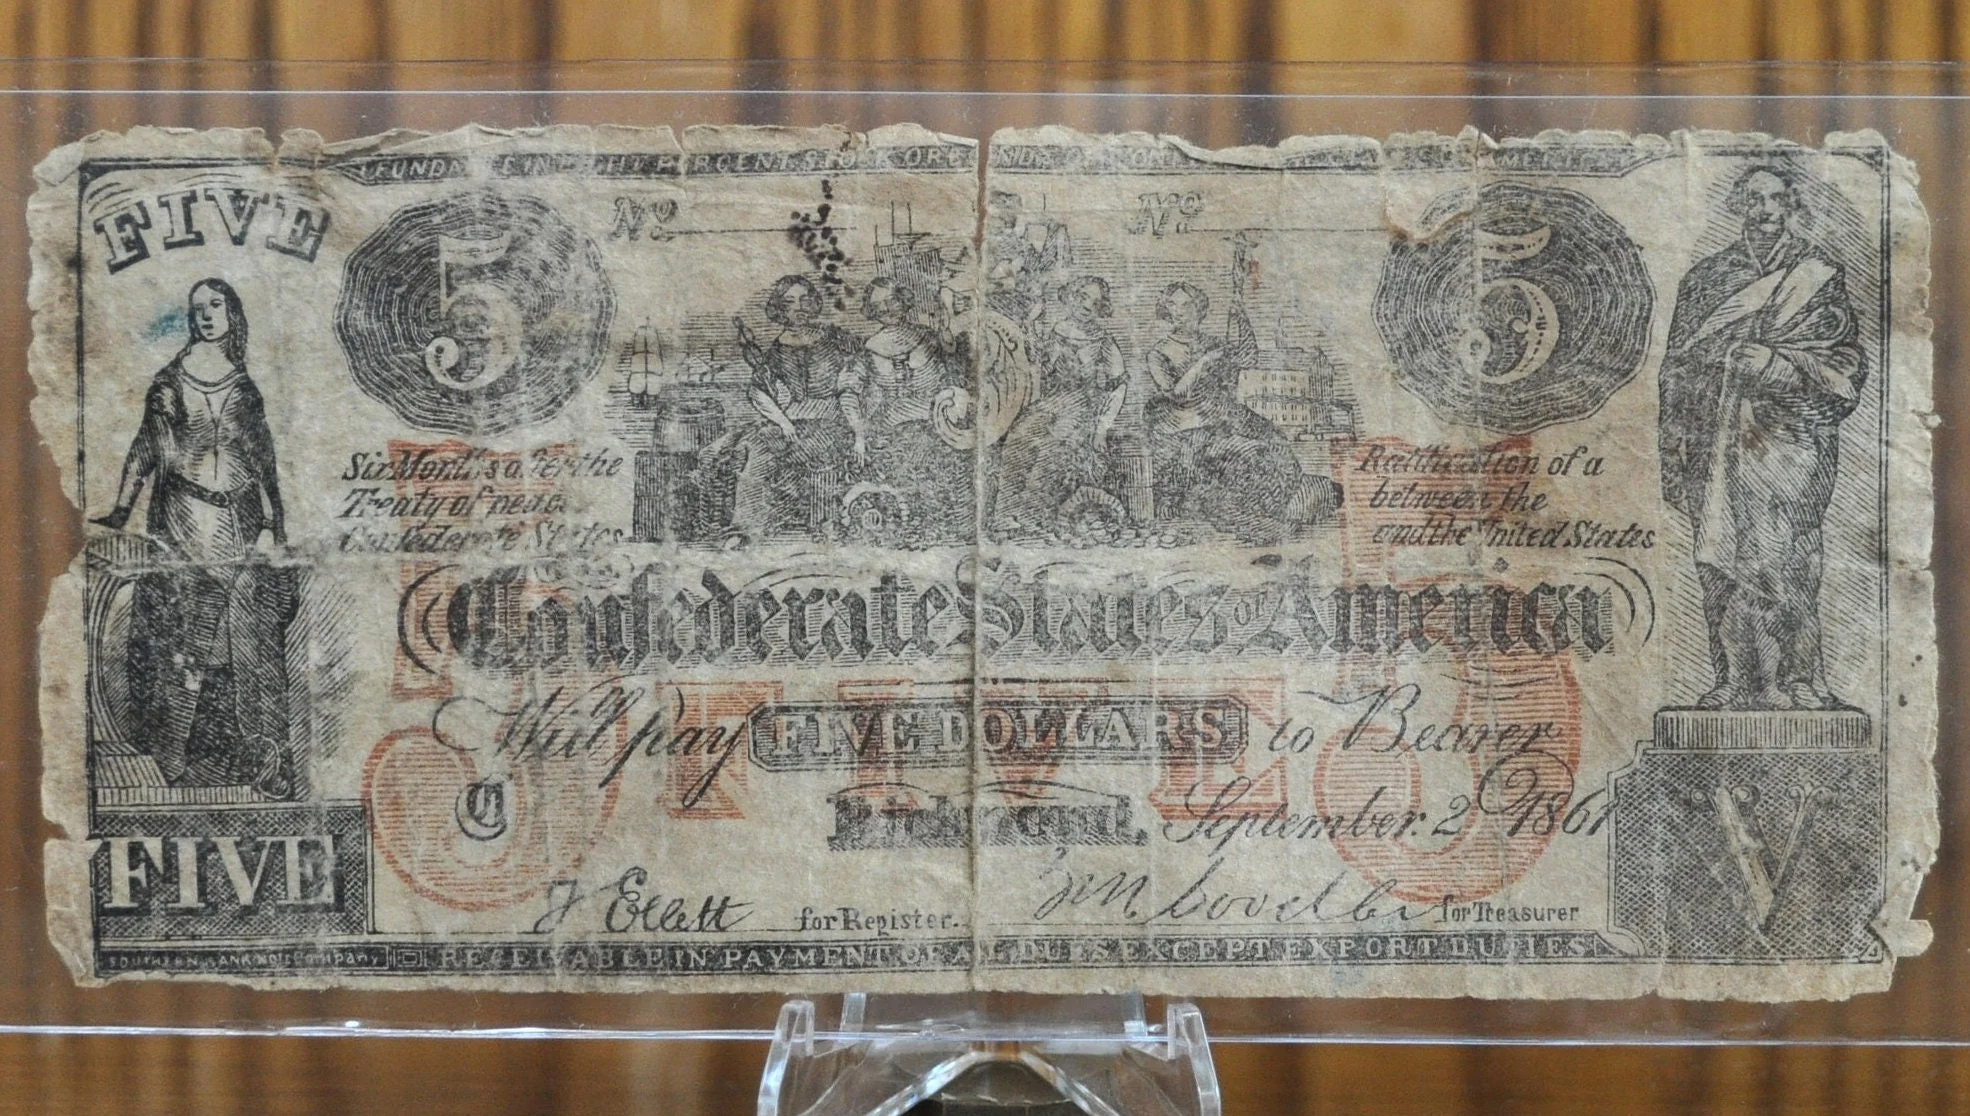 FUNDABLE IN EIGHT PERCENT STOCK OR
FIVE
5
Nº
Nº
5
Six Months after the
Treaty of peace
Confederate States
Ratification of a
between the
and the United States
Confederate States of America
Will pay FIVE DOLLARS to Bearer
FIVE
C
Richmond, September 2 1861
FIVE
J Ellett for Register.
for Treasurer
V
SOUTHERN BANK NOTE Company
RECEIVABLE IN PAYMENT OF ALL DUES EXCEPT EXPORT DUTIES